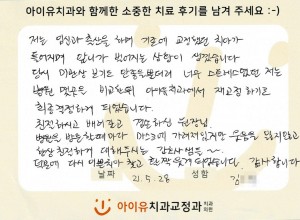 아이유치과와 함께한 소중한 치료 후기를 남겨 주세요 :-)
저는 임신과 출산을 하며 기존에 교정했던 치아가
틀어지며 앞니가 벌어지는 상황이 생겼습니다
당시 미관상 보기도 안좋을뿐더러 너무 스트레스였던 저는
병원 몇군데 비교한뒤 아이유치과에서 재교정 하기로
최종결정하게 되었습니다.
친절하시고 배려깊고 꼼꼼하신 원장님.
병원을 방문할때마다 마스크에 가려져있지만 웃음을 잃지않고
항상 친절하게 대해주시는 간호사분들 ~
덕분에 다시 이쁜치아 찾고 한짝 웃게 되었습니다. 감사합니다
날짜 21.5.28 성함 김
아이유치과교정과 치과의원